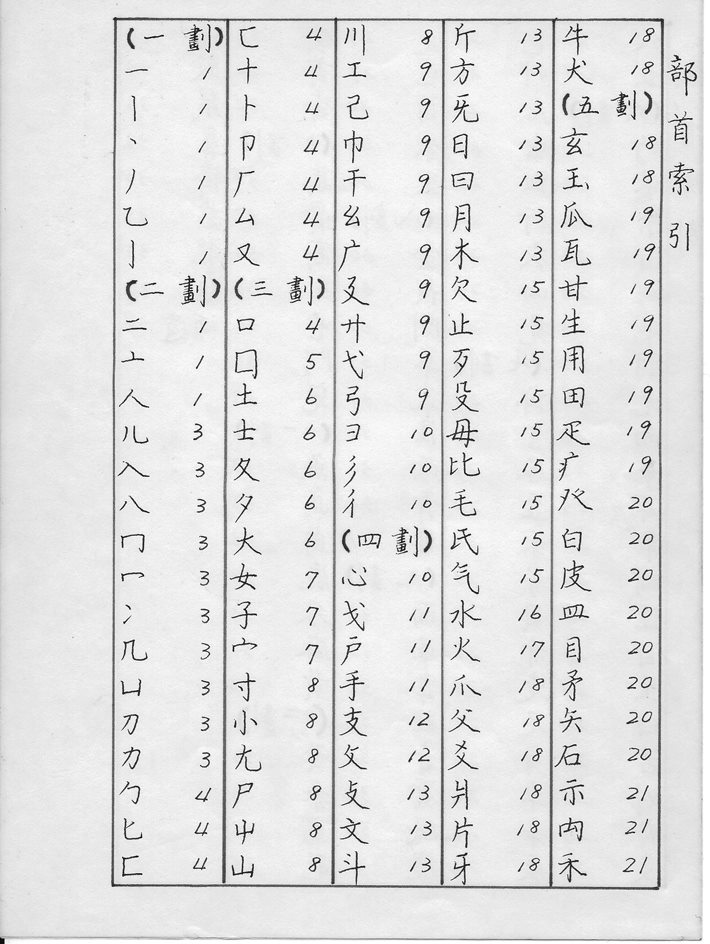 部首索引
(一劃)
一 1
丨 1
丶 1
丿 1
乙 1
亅 1
(二劃)
二 1
亠 1
人 1
儿 3
入 3
八 3
冂 3
冖 3
冫 3
几 3
凵 3
刀 3
力 3
勹 4
匕 4
匚 4
匸 4
十 4
卜 4
卩 4
厂 4
厶 4
又 4
(三劃)
口 4
囗 5
土 6
士 6
夂 6
夕 6
大 6
女 7
子 7
宀 7
寸 8
小 8
尢 8
尸 8
屮 8
山 8
川 8
工 9
己 9
巾 9
干 9
幺 9
广 9
廴 9
廾 9
弋 9
弓 9
彐 10
彡 10
彳 10
(四劃)
心 10
戈 11
戶 11
手 11
支 12
攵 12
攴 13
文 13
斗 13
斤 13
方 13
旡 13
日 13
曰 13
月 13
木 13
欠 15
止 15
歹 15
殳 15
毋 15
比 15
毛 15
氏 15
气 15
水 16
火 17
爪 18
父 18
爻 18
爿 18
片 18
牙 18
牛 18
犬 18
(五劃)
玄 18
玉 18
瓜 19
瓦 19
甘 19
生 19
用 19
田 19
疋 19
疒 19
癶 20
白 20
皮 20
皿 20
目 20
矛 20
矢 20
石 20
示 21
禸 21
禾 21